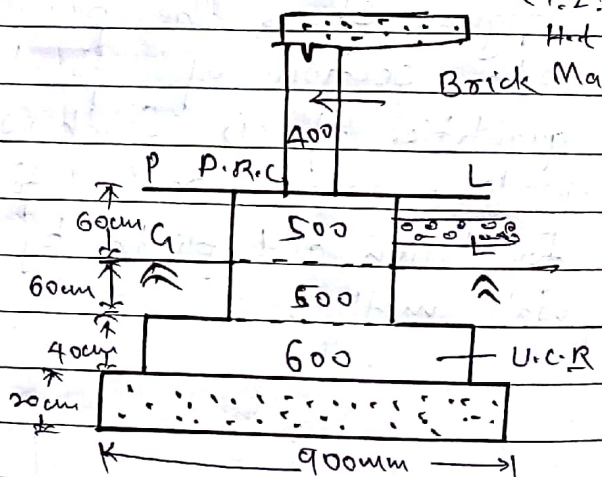 (1:2:
Brick Ma
400
P D.R.C. L
60cm G 500 L
60cm 500
40cm 600 U.C.R
20cm
900mm